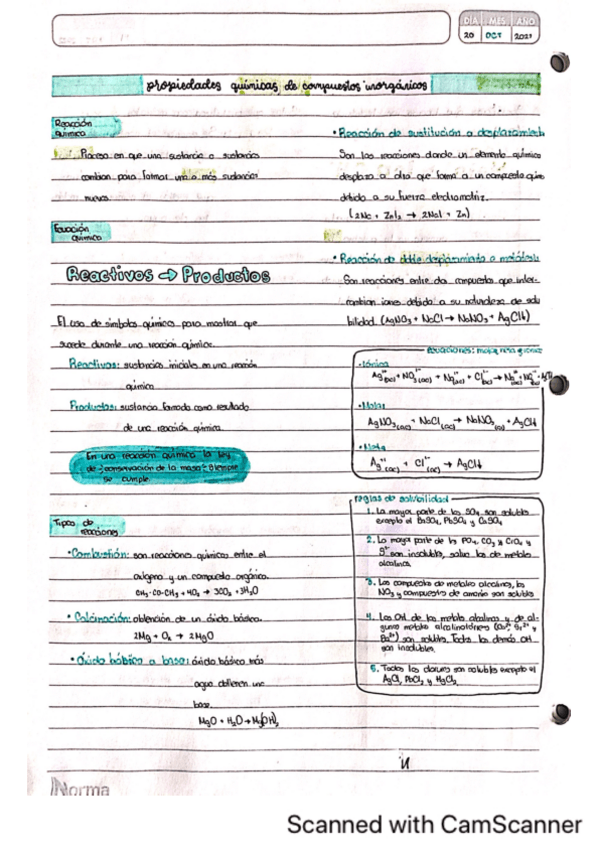 DIA MES AÑO
20 OCT 2021
propiedades químicas de compuestos inorgánicos
Reacción
química
Proceso en que una sustancia o sustancias
cambian para formar una o más sustancias
nuevas
Ecuación
química
Reactivos → Productos
El uso de símbolos químicos para mostrar que
sucede durante una reacción química.
Reactivos: sustancias iniciales en una reacción
química
Productos: sustancia formada como resultado
de una reacción química
En una reacción química la ley
de conservación de la masa siempre
se cumple
Tipos de
reacciones
• Combustión: son reacciones químicas entre el
oxígeno y un compuesto orgánico.
CH3-CO-CH3 + 4O2 → 3CO2 + 3H2O
• Calcinación: obtención de un óxido básico.
2Mg + O2 → 2MgO
• Óxido básico a base: óxido básico más
agua obtienen una
base.
MgO + H2O → Mg(OH)2
• Reacción de sustitución o desplazamiento
Son las reacciones donde un elemento químico
desplaza a otro que forma a un compuesto quím
debido a su fuerza electromotriz.
(2Na + ZnI2 → 2NaI + Zn)
• Reacción de doble desplazamiento o metátesis
Son reacciones entre dos compuestos que inter-
cambian iones debido a su naturaleza de solu
bilidad. (AgNO3 + NaCl → NaNO3 + AgCl↓)
Ecuaciones:
• Iónica
Ag+(ac) + NO3-(ac) + Na+(ac) + Cl-(ac) → Na+(ac) + NO3-(ac) + AgCl↓
• Molar
AgNO3(ac) + NaCl(ac) → NaNO3(ac) + AgCl↓
• Neta
Ag+(ac) + Cl-(ac) → AgCl↓
reglas de solubilidad
1. La mayor parte de los SO4 son solubles
excepto el BaSO4, PbSO4 y CaSO4
2. La mayor parte de los PO4, CO3 y CrO4 y
S2- son insolubles, salvo los de metales
alcalinos.
3. Los compuestos de metales alcalinos, los
NO3 y compuestos de amonio son solubles
4. Los OH de los metales alcalinos y de al-
gunos metales alcalinotérreos (Ca2+, Sr2+ y
Ba2+) son solubles. Todos los demás OH
son insolubles.
5. Todos los cloruros son solubles excepto el
AgCl, PbCl2 y HgCl2
Norma
Scanned with CamScanner